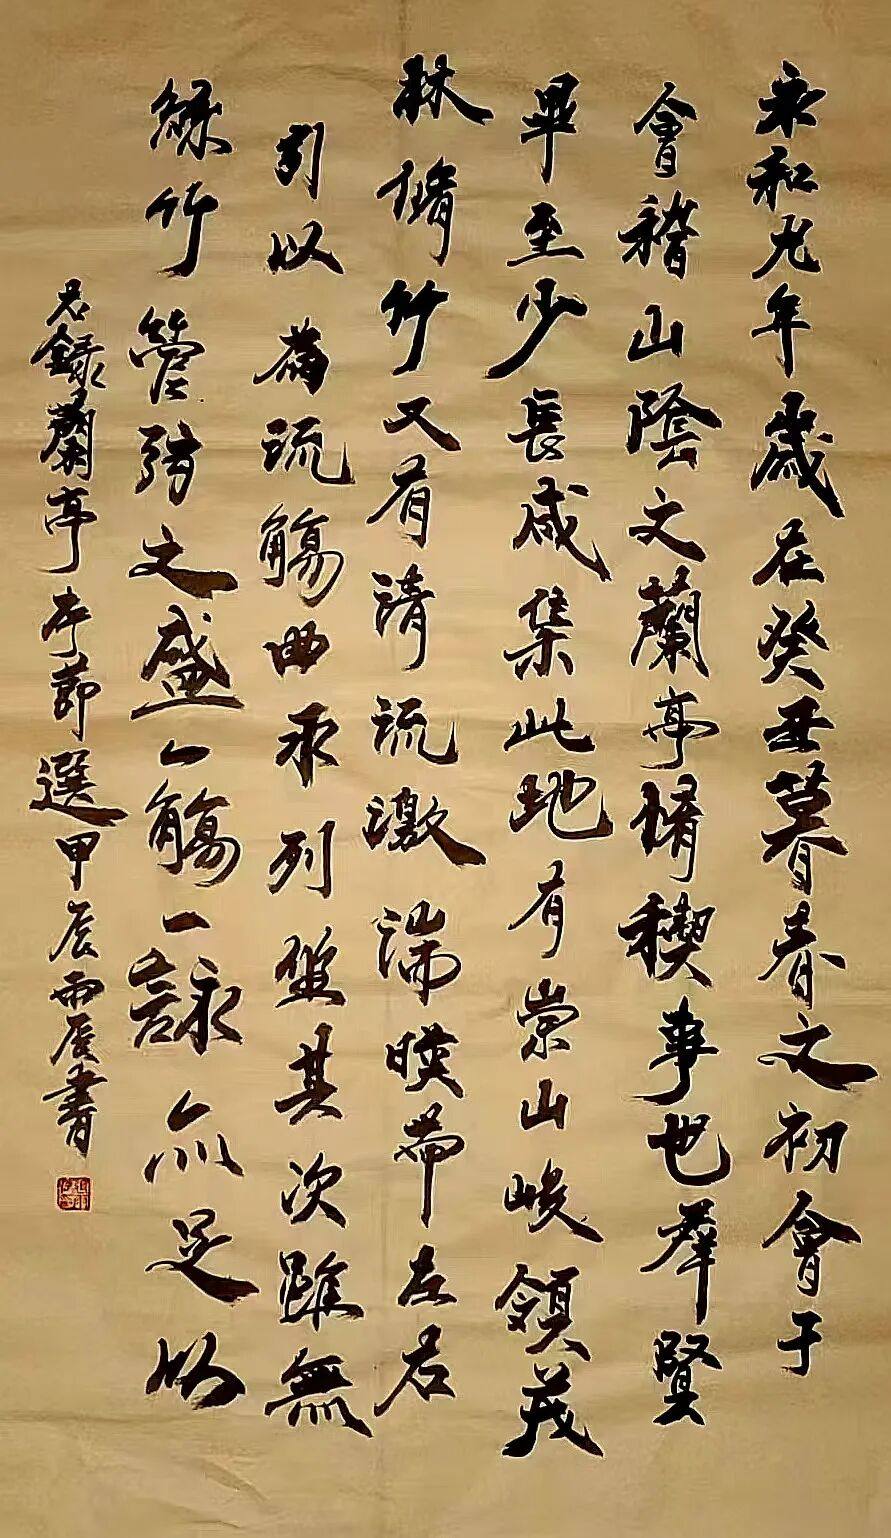 永和九年歲在癸丑暮春之初會于
會稽山陰之蘭亭脩稧事也群賢
畢至少長咸集此地有崇山峻領茂
林脩竹又有清流激湍暎帶左右
引以為流觴曲水列坐其次雖無
絲竹管弦之盛一觴一詠亦足以
右錄蘭亭序節選甲辰雨辰書